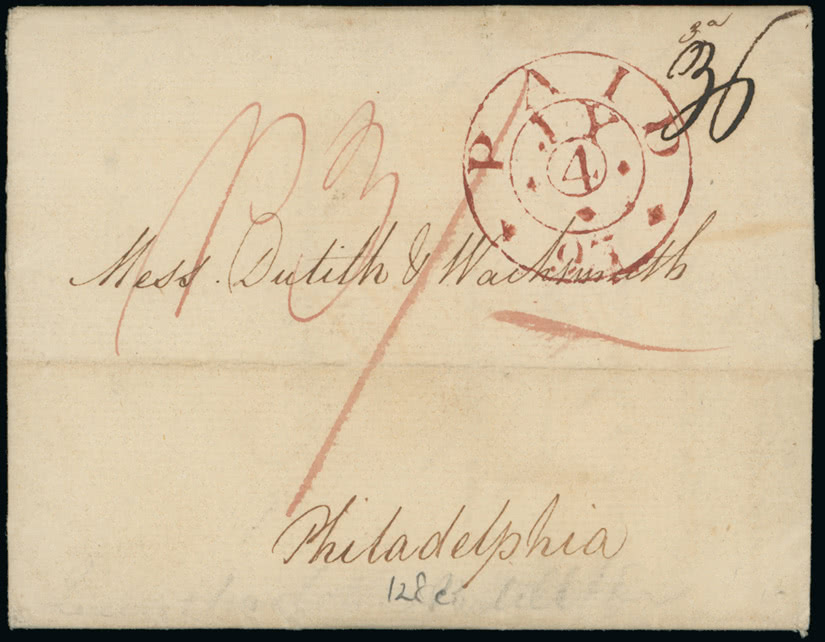 3a
36
PAID
4
95
P 3/-
Mess. Dutilh & Wachsmuth
Philadelphia